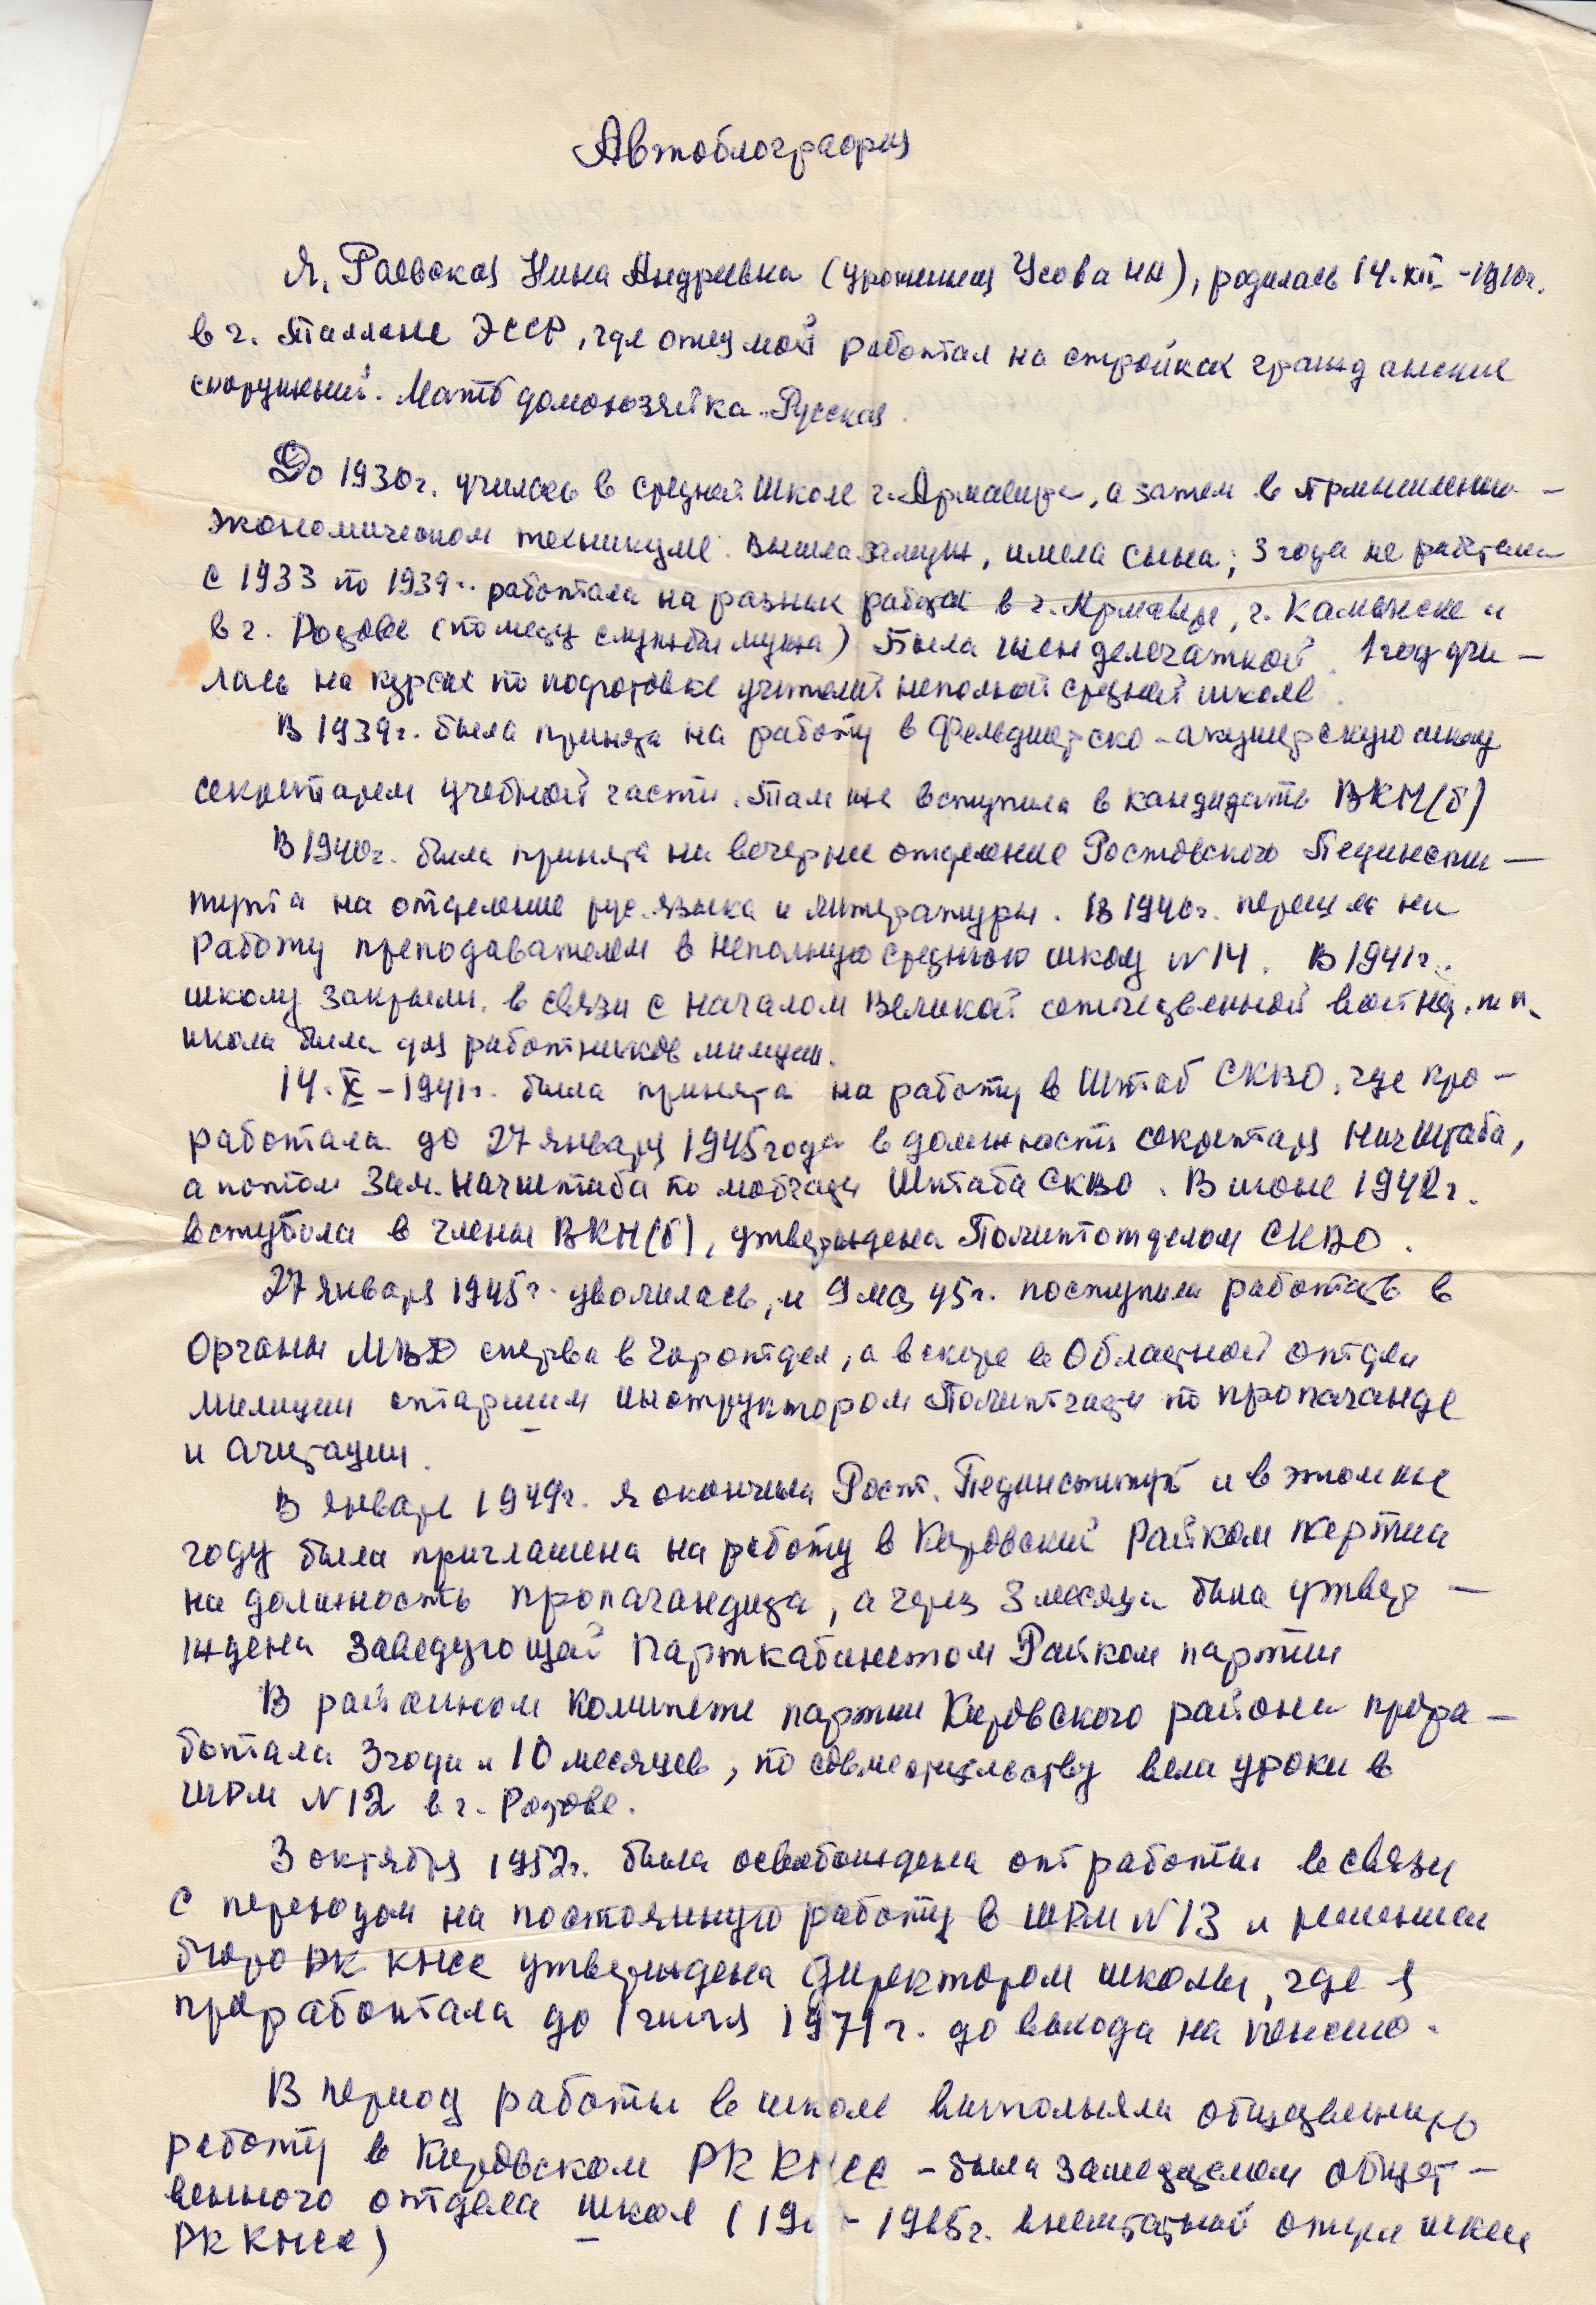 Автобиография
Я, Раевская Нина Андреевна (урожинная Усова НИ), родилась 14.XII-1910г.
в г. Таллине ЭССР, где отец мой работал на стройках гражданских
сооружений. Мать домохозяйка. Русская.
До 1930г. училась в средней школе г. Армавира, а затем в промышленно-
экономическом техникуме. Вышла замуж, имела сына; 3 года не работала
С 1933 по 1939г. работала на разных работах в г. Армавире, г. Каменске и
в г. Ростове (по месту службы мужа) Была членделегаткой. 1 год учи-
лась на курсах по подготовке учителей неполной средней школе.
В 1939г. была принята на работу в Фельдшерско-акушерскую школу
секретарем учебной части. Там же вступила в кандидаты ВКП(б)
В 1940г. была принята на вечернее отделение Ростовского Пединсти-
тута на отделение рус. языка и литературы. В 1940г. перешла на
работу преподавателем в неполную среднюю школу №14. В 1941г.
школу закрыли, в связи с началом Великой отечественной войны, т.к.
школа была для работников милиции.
14.X-1941г. была принята на работу в Штаб СКВО, где про-
работала до 27 января 1945 года в должность секретаря Нач Штаба,
а потом Зам. Начштаба по мобчасти Штаба СКВО. В июне 1942г.
вступила в члены ВКП(б), утверждена Политотделом СКВО.
27 января 1945г. уволилась, и 9 мая 45г. поступила работать в
Органы МВД сперва в Горотдел, а вскоре в Областной отдел
Милиции старшим инструктором Политчасти по пропаганде
и агитации.
В январе 1949г. я окончила Рост. Пединститут и в этом же
году была приглашена на работу в Кировский Райком партии
на должность пропагандиста, а через 3 месяца была утвер-
ждена Заведующей Парткабинетом Райком партии
В районном комитете партии Кировского района прора-
ботала 3 года и 10 месяцев, по совместительству вела уроки в
ШРМ №12 в г. Ростове.
3 октября 1952г. была освобождена от работы в связи
с переходом на постоянную работу в ШРМ №13 и решением
бюро РК КПСС утверждена Директором школы, где я
проработала до 1 июля 1971г. до выхода на пенсию.
В период работы в школе выполняла общественную
работу в Кировском РК КПСС - была Зам
венного отдела школ (19 - 1965г. внештатный отдел школ
РК КПСС)